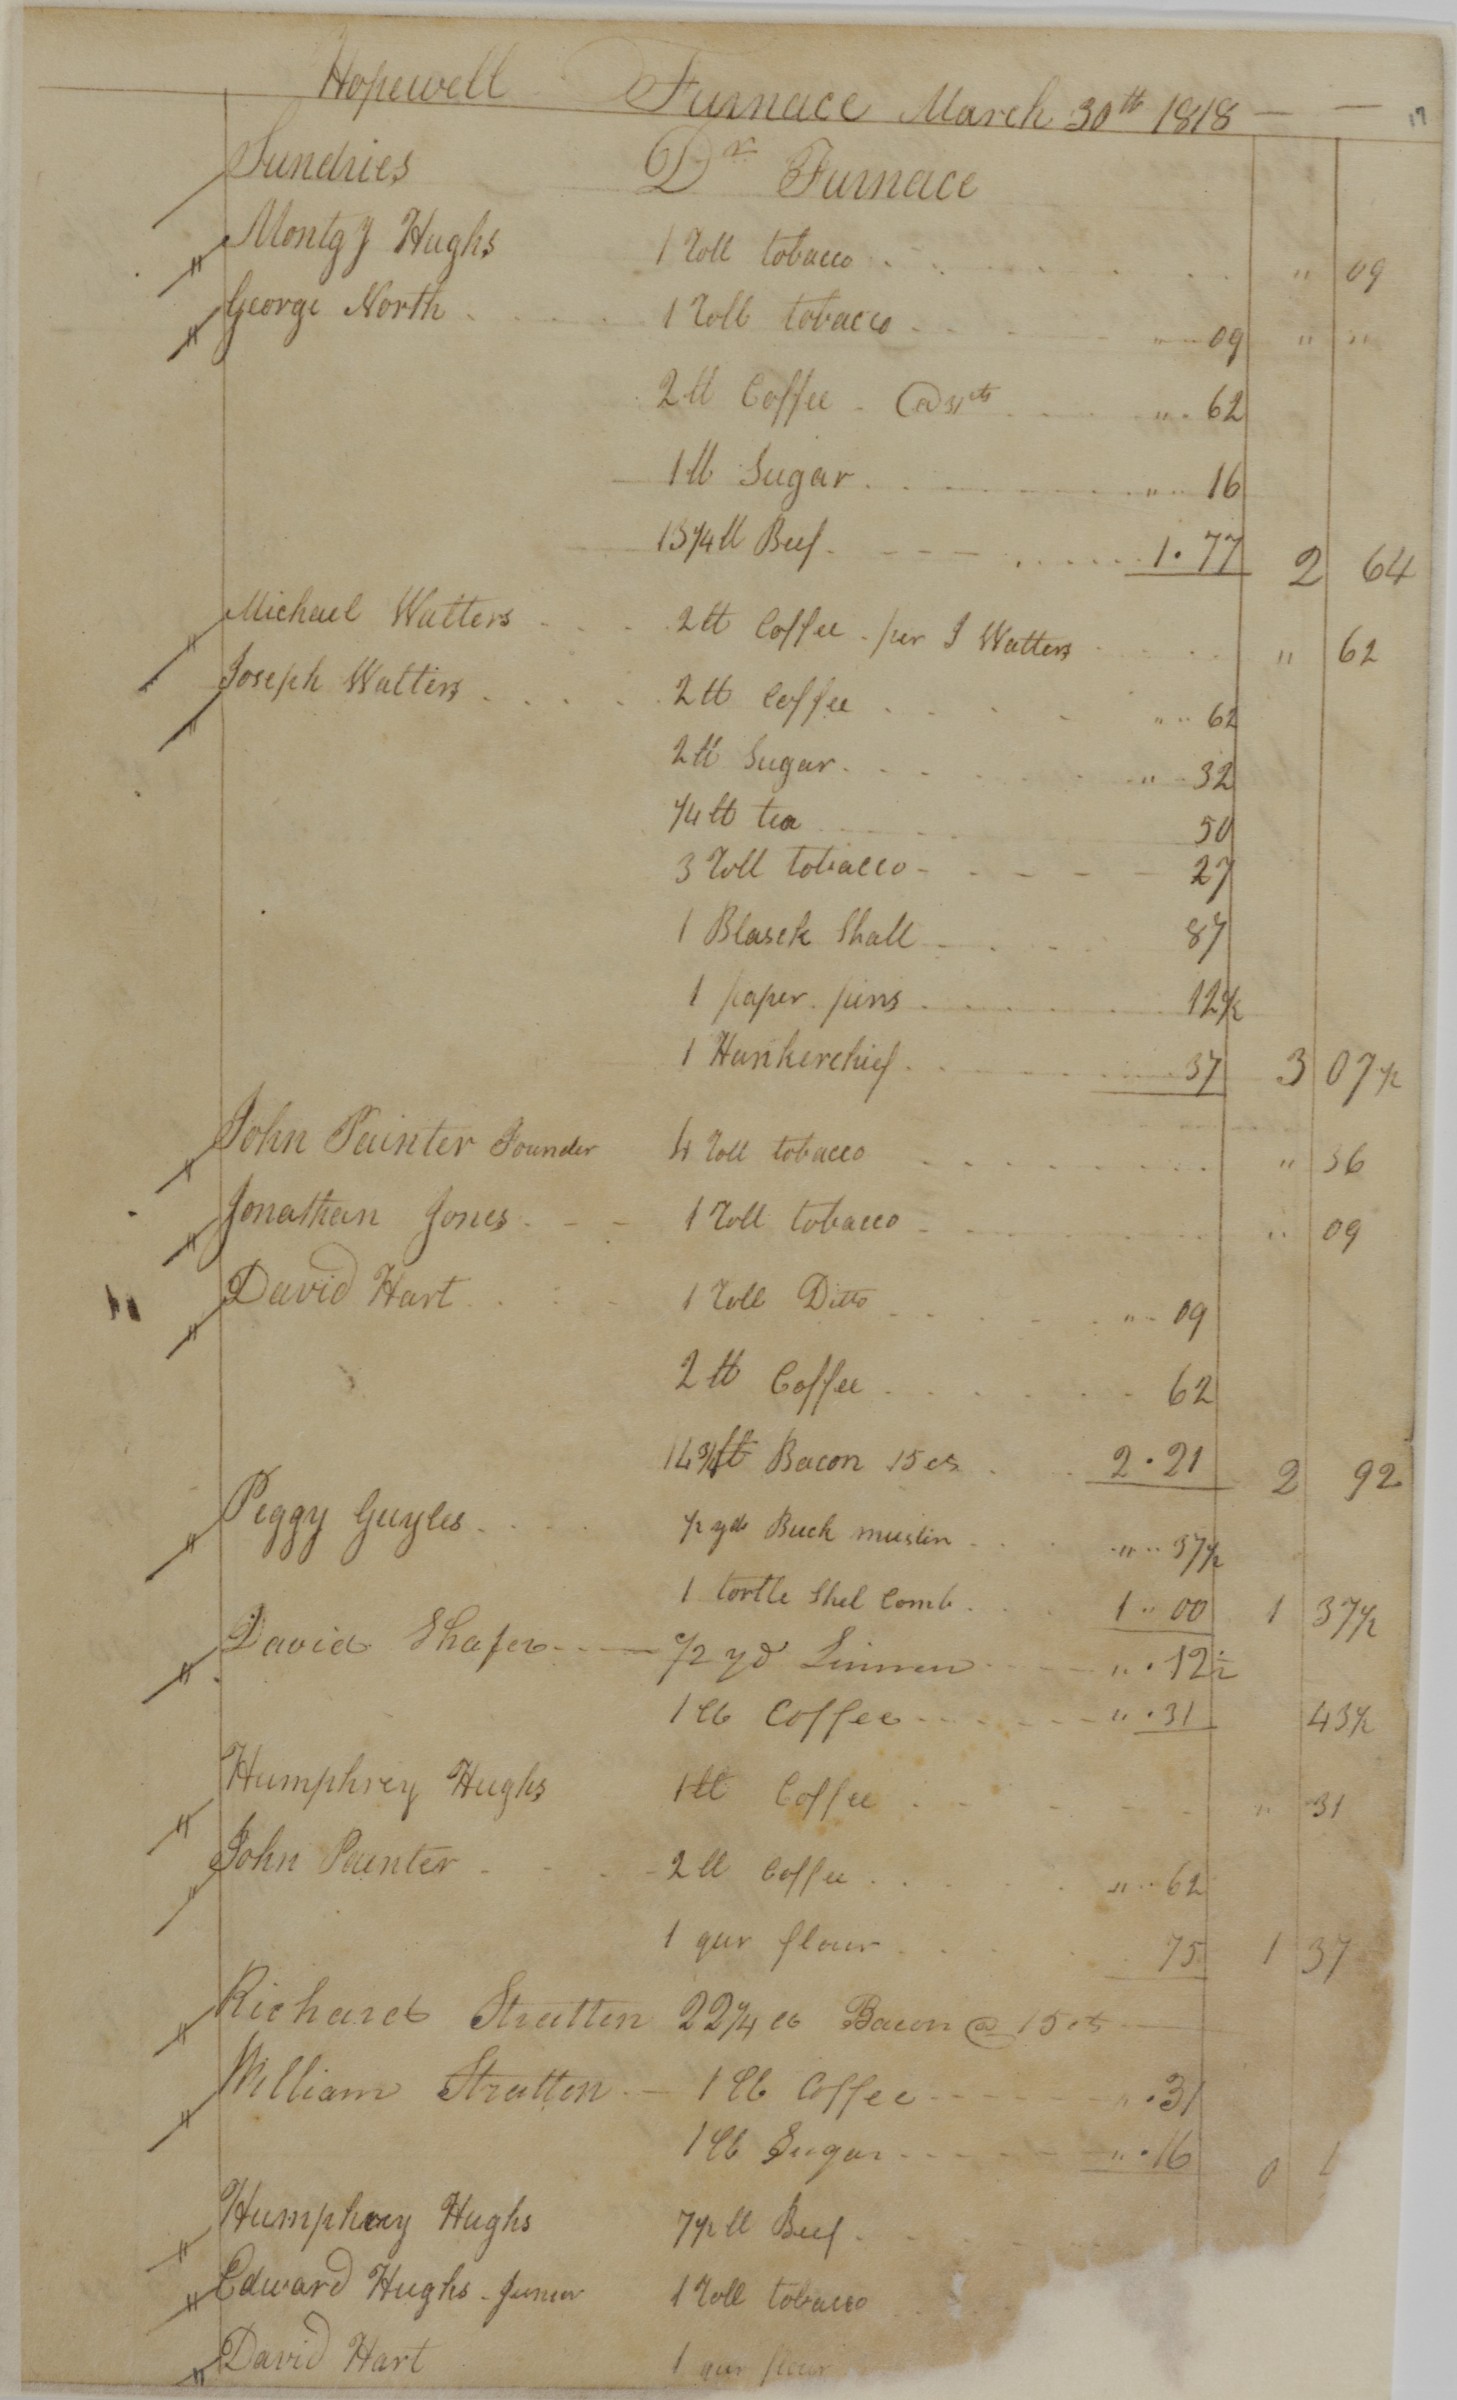 17
Hopewell Furnace March 30th 1818
Sundries Dr Furnace
Montgy Hughs 1 Roll tobacco " 09
George North 1 Roll tobacco " 09 " "
2 lb Coffee @ 31 cts " 62
1 lb Sugar " 16
13 1/4 lb Beef 1.77 2 64
Michael Watters 2 lb Coffee per J Watters " 62
Joseph Watters 2 lb Coffee " 62
2 lb Sugar " 32
1/4 lb tea 50
3 Roll tobacco 27
1 Blasck Shall 87
1 paper pins 12 1/2
1 Hankerchief 37 3 07 1/2
John Painter Founder 4 Roll tobacco " 36
Jonathan Jones 1 Roll tobacco " 09
David Hart 1 Roll Ditto " 09
2 lb Coffee 62
14 3/4 lb Bacon 15 cts 2.21 2 92
Peggy Guyles 1/2 yds Buck muslin " 37 1/2
1 tortle Shel Comb 1 " 00 1 37 1/2
David Shafer 1/2 yd Linnen " 12 1/2
1 lb Coffee " 31 43 1/2
Humphrey Hughs 1 lb Coffee " 31
John Painter 2 lb Coffee " 62
1 qur flour 75 1 37
Richard Stratten 22 1/4 lb Bacon @ 15 cts
William Stratten 1 lb Coffee " 31
1 lb Sugar " 16 0
Humphrey Hughs 7 1/2 lb Beef
Edward Hughs Junior 1 Roll tobacco
David Hart 1 qur flour